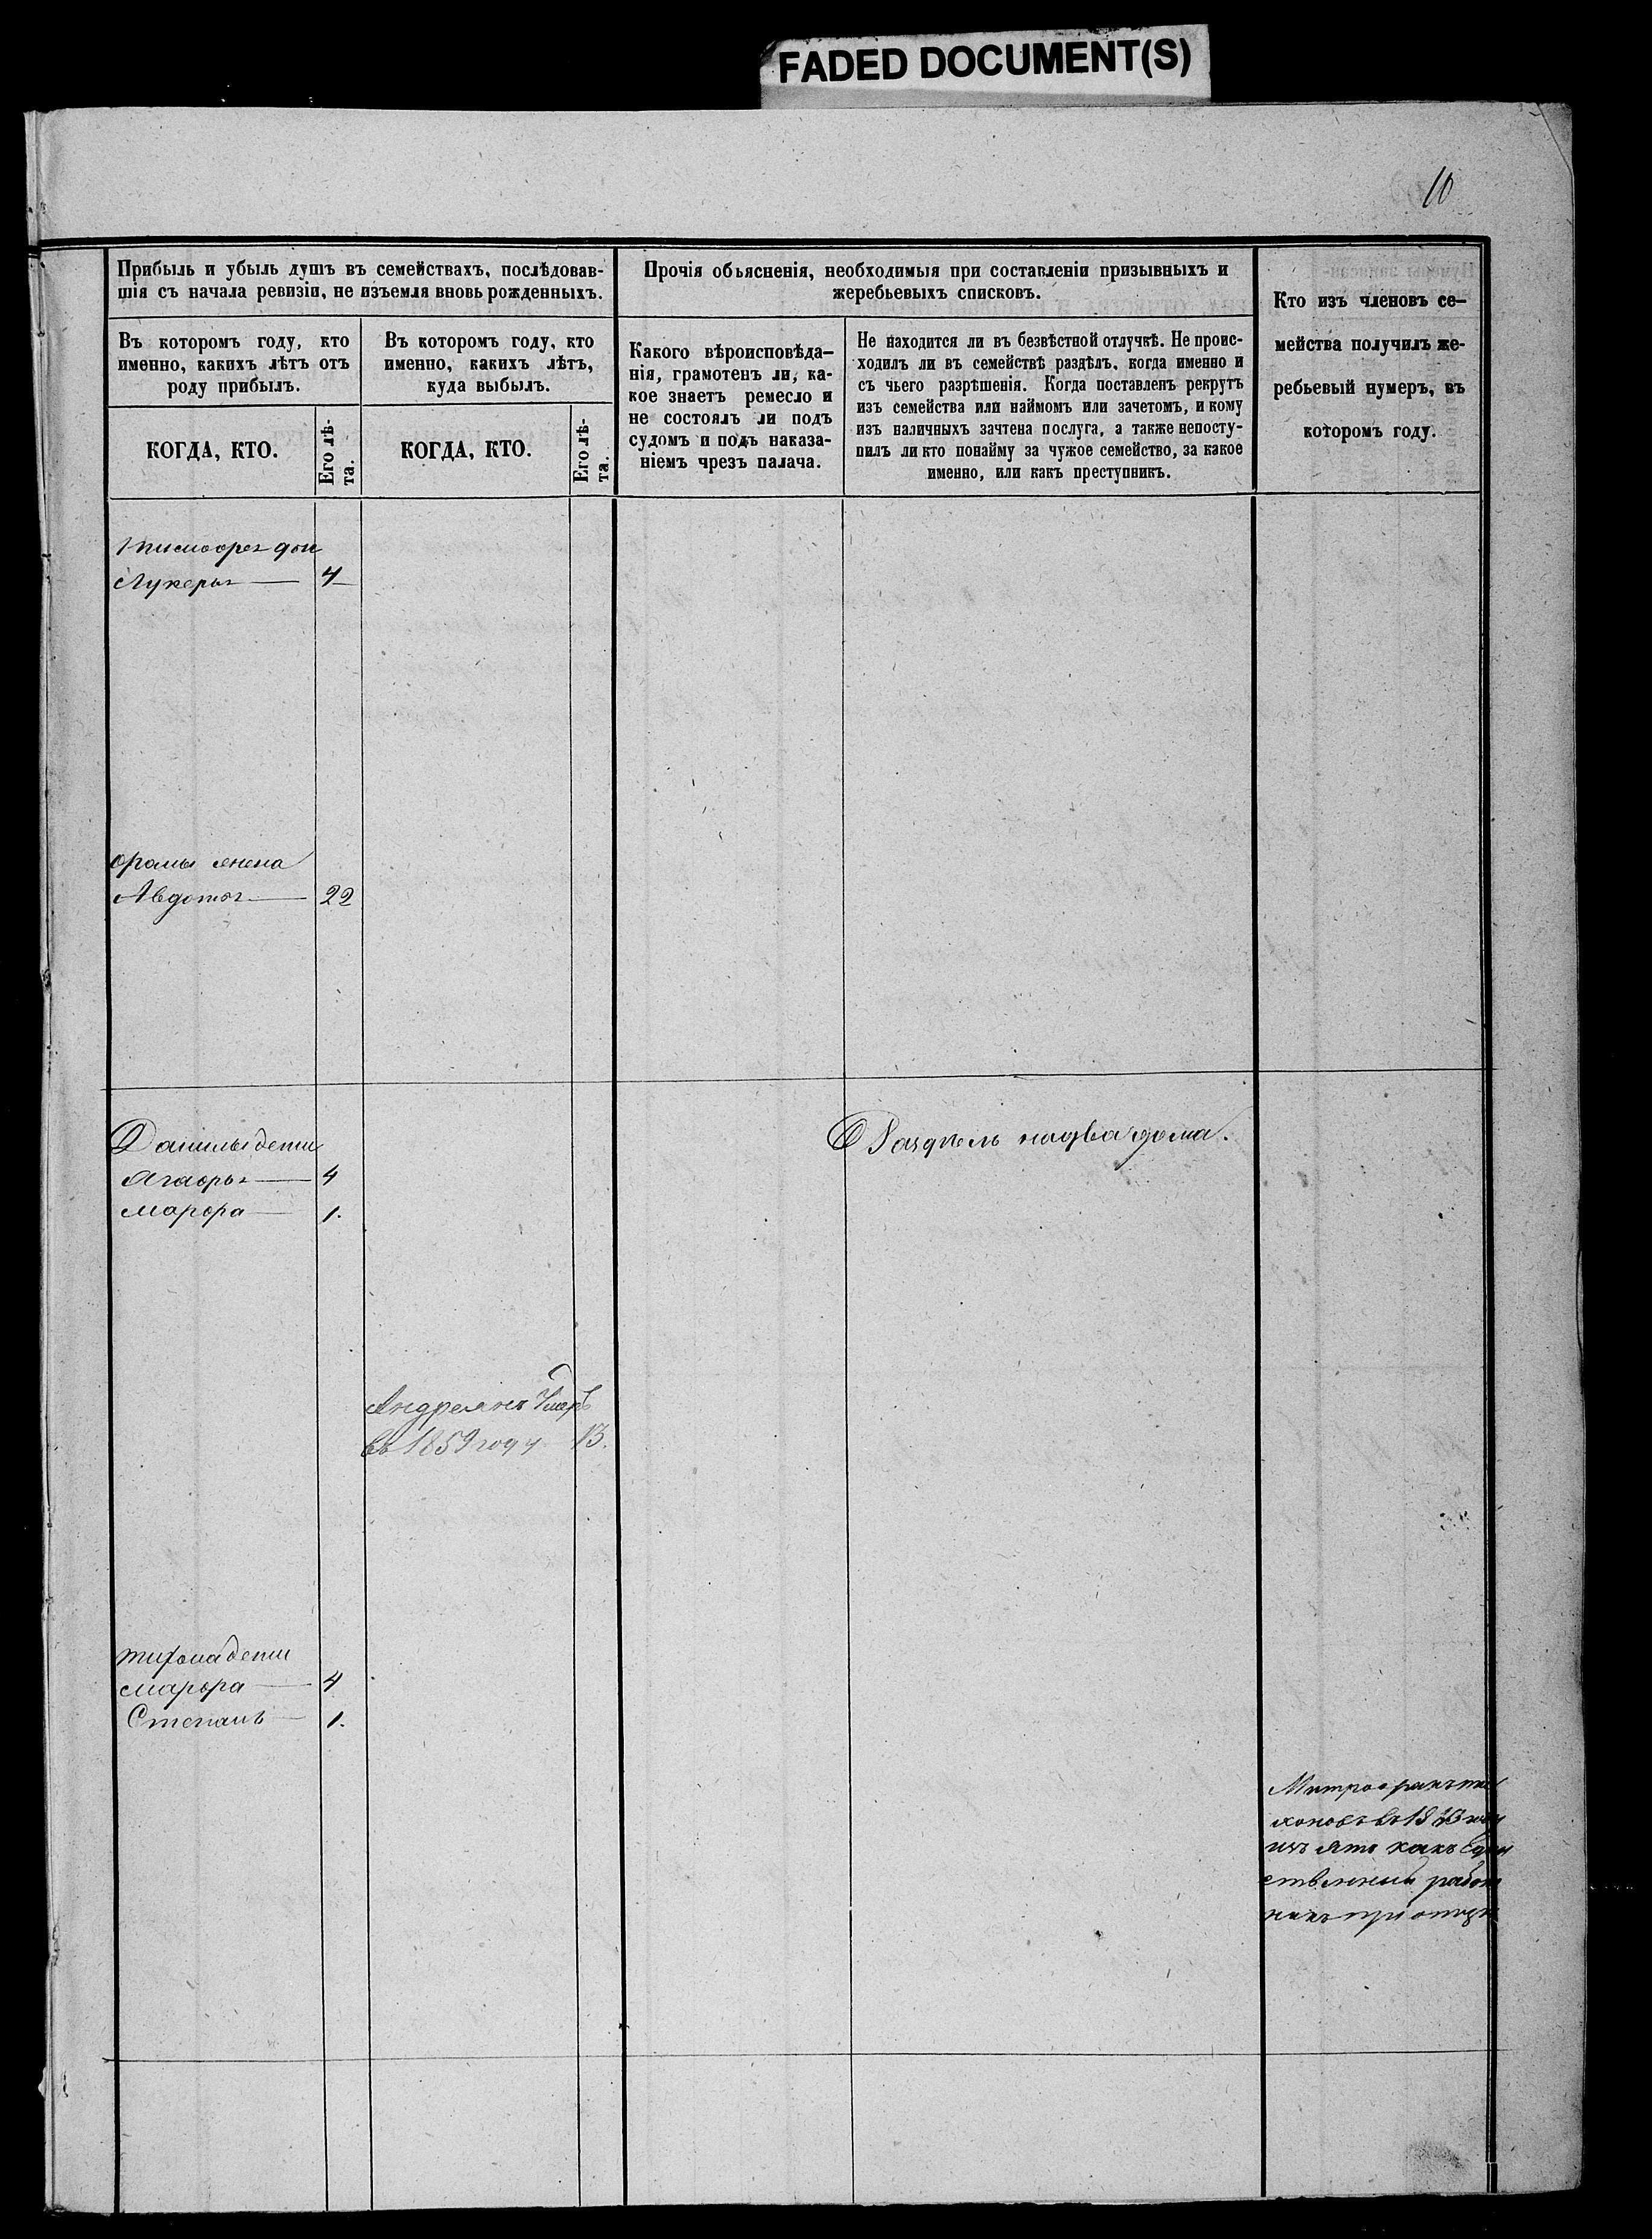 FADED DOCUMENT(S)
10
Прибыль и убыль душъ въ семействахъ, послѣдовав-
шія съ начала ревизіи, не изъемля вновь рожденныхъ.
Въ которомъ году, кто
именно, какихъ лѣтъ отъ
роду прибылъ.
КОГДА, КТО.
Его лѣ-
та.
Въ которомъ году, кто
именно, какихъ лѣтъ,
куда выбылъ.
КОГДА, КТО.
Его лѣ-
та.
Прочія обьясненія, необходимыя при составленіи призывныхъ и
жеребьевыхъ списковъ.
Какого вѣроисповѣда-
нія, грамотенъ ли, ка-
кое знаетъ ремесло и
не состоялъ ли подъ
судомъ и подъ наказа-
ніемъ чрезъ палача.
Не находится ли въ безвѣстной отлучкѣ. Не проис-
ходилъ ли въ семействѣ раздѣлъ, когда именно и
съ чьего разрѣшенія. Когда поставленъ рекрутъ
изъ семейства или наймомъ или зачетомъ, и кому
изъ наличныхъ зачтена послуга, а также непосту-
пилъ ли кто понайму за чужое семейство, за какое
именно, или какъ преступникъ.
Кто изъ членовъ се-
мейства получилъ же-
ребьевый нумеръ, въ
которомъ году.
Лукерья 4
фомы жена
Авдотья 22
Данилы дети
Агафья 4
марфа 1.
Раздѣлъ надва дома.
Андреянъ Умеръ
въ 1859 году 13.
дети
марфа 4
Степанъ 1.
Митрофанъ
въ 1873 году
какъ един
ственный работ
никъ при отцѣ